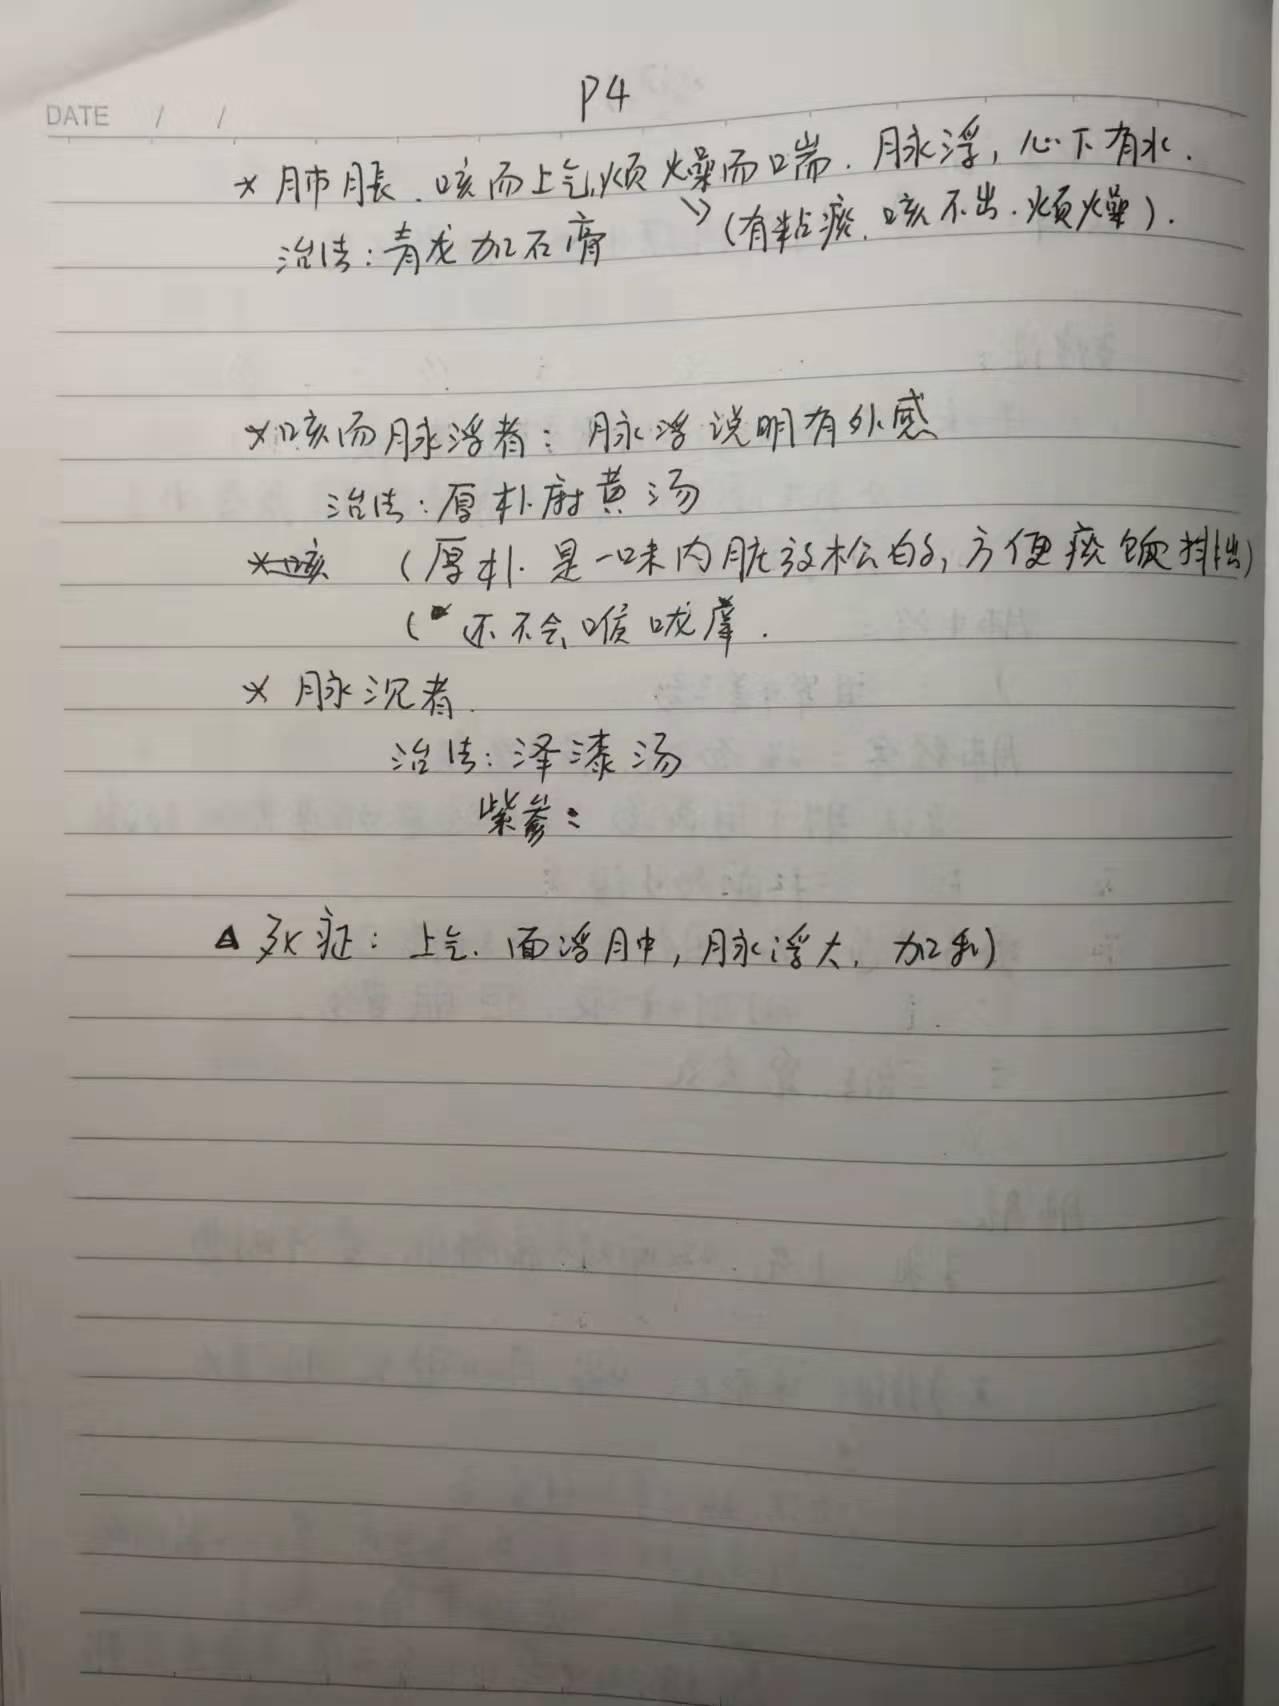 P4
DATE / /
* 肺胀.咳而上气,烦燥而喘.脉浮,心下有水.
(有粘痰.咳不出.烦燥).
治法:青龙加石膏
*咳而脉浮者:脉浮说明有外感
治法:厚朴麻黄汤
*咳 (厚朴是一味内脏放松的,方便痰饮排出)
(还不会喉咙痒.
* 脉沉者.
治法:泽漆汤
紫参:
△ 死症:上气.面浮肿,脉浮大,加利)